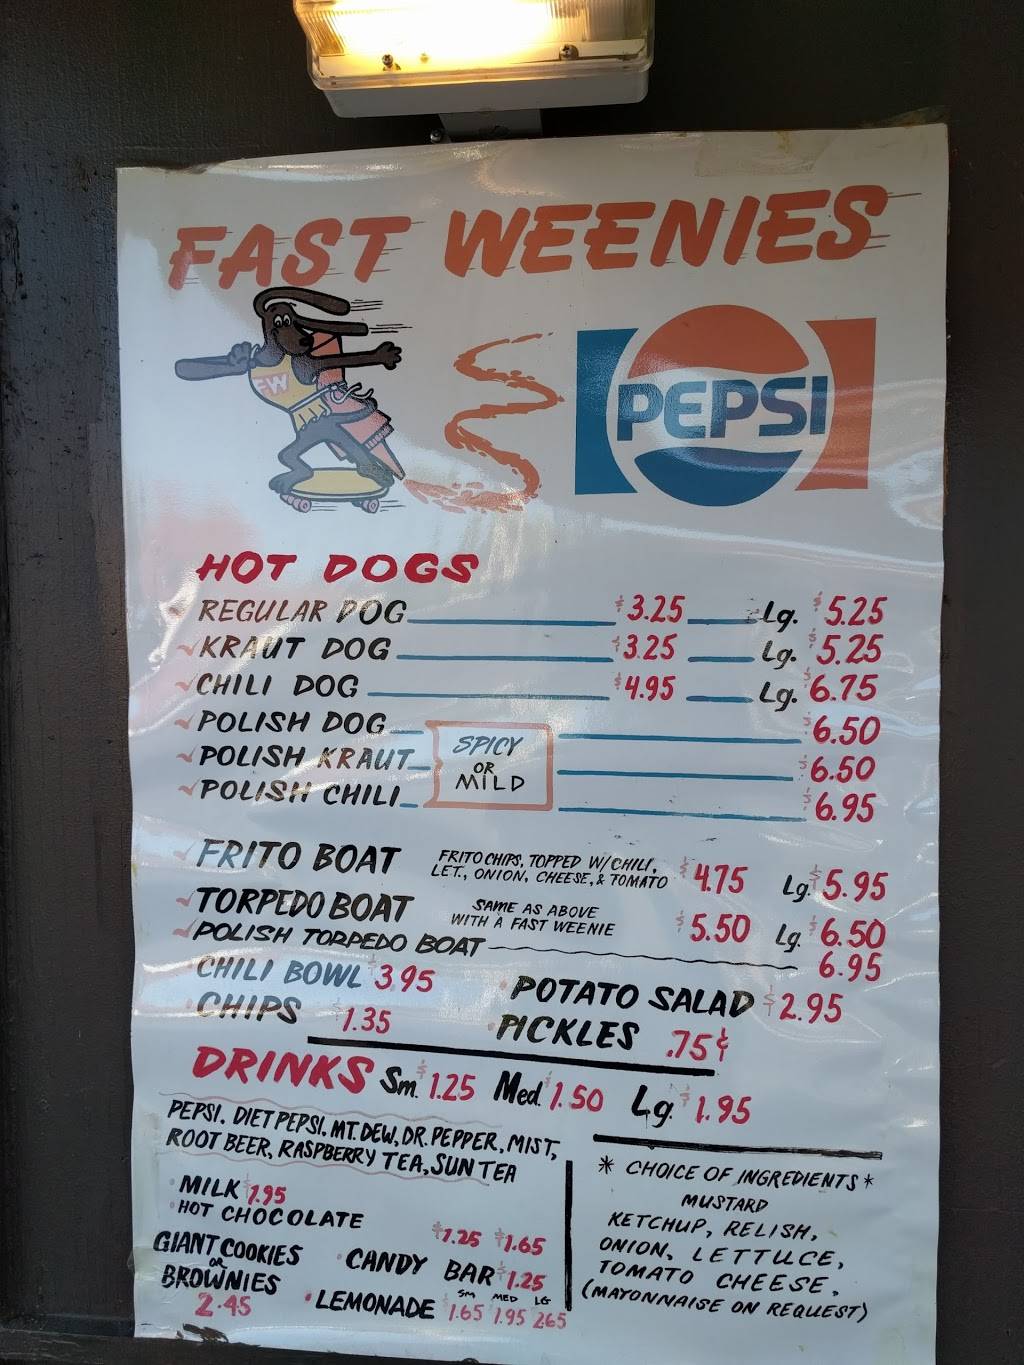 FAST WEENIES
FW
PEPSI
HOT DOGS
REGULAR DOG $3.25 Lg. $5.25
KRAUT DOG $3.25 Lg. $5.25
CHILI DOG $4.95 Lg. $6.75
POLISH DOG $6.50
POLISH KRAUT $6.50
POLISH CHILI $6.95
SPICY
OR
MILD
FRITO BOAT FRITO CHIPS, TOPPED W/CHILI, LET., ONION, CHEESE, & TOMATO $4.75 Lg. $5.95
TORPEDO BOAT SAME AS ABOVE WITH A FAST WEENIE $5.50 Lg. $6.50
POLISH TORPEDO BOAT 6.95
CHILI BOWL $3.95 POTATO SALAD $2.95
CHIPS $1.35 PICKLES .75¢
DRINKS Sm. $1.25 Med. $1.50 Lg. $1.95
PEPSI, DIET PEPSI, MT. DEW, DR. PEPPER, MIST,
ROOT BEER, RASPBERRY TEA, SUN TEA
MILK $1.95
HOT CHOCOLATE $1.25 $1.65
GIANT COOKIES
OR
BROWNIES
2.45
CANDY BAR $1.25
SM MED LG
LEMONADE $1.65 1.95 2.65
* CHOICE OF INGREDIENTS *
MUSTARD
KETCHUP, RELISH,
ONION, LETTUCE,
TOMATO CHEESE.
(MAYONNAISE ON REQUEST)